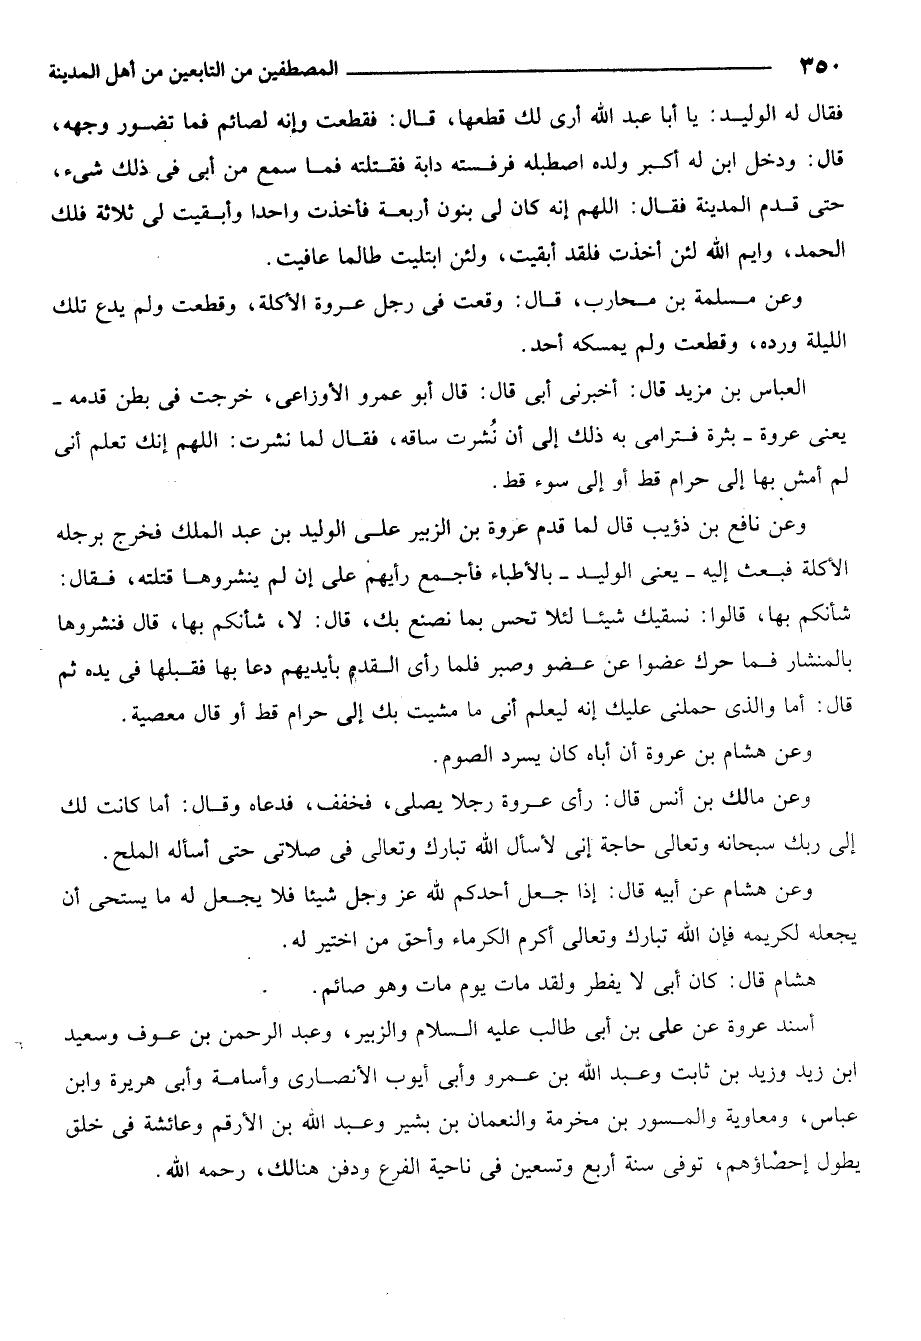 ٣٥٠ المصطفين من التابعين من أهل المدينة
فقال له الوليد: يا أبا عبد الله أرى لك قطعها، قال: فقطعت وإنه لصائم فما تضور وجهه،
قال: ودخل ابن له أكبر ولده اصطبله فرفسته دابة فقتلته فما سمع من أبى فى ذلك شىء،
حتى قدم المدينة فقال: اللهم إنه كان لى بنون أربعة فأخذت واحدا وأبقيت لى ثلاثة فلك
الحمد، وايم الله لئن أخذت فلقد أبقيت، ولئن ابتليت طالما عافيت.
وعن مسلمة بن محارب، قال: وقعت فى رجل عروة الأكلة، وقطعت ولم يدع تلك
الليلة ورده، وقطعت ولم يمسكه أحد.
العباس بن مزيد قال: أخبرنى أبى قال: قال أبو عمرو الأوزاعى، خرجت فى بطن قدمه ـ
يعنى عروة ـ بثرة فترامى به ذلك إلى أن نُشرت ساقه، فقال لما نشرت: اللهم إنك تعلم أنى
لم أمش بها إلى حرام قط أو إلى سوء قط.
وعن نافع بن ذؤيب قال لما قدم عروة بن الزبير على الوليد بن عبد الملك فخرج برجله
الأكلة فبعث إليه ـ يعنى الوليد ـ بالأطباء فأجمع رأيهم على إن لم ينشروها قتلته، فقال:
شأنكم بها، قالوا: نسقيك شيئا لئلا تحس بما نصنع بك، قال: لا، شأنكم بها، قال فنشروها
بالمنشار فما حرك عضوا عن عضو وصبر فلما رأى القدم بأيديهم دعا بها فقبلها فى يده ثم
قال: أما والذى حملنى عليك إنه ليعلم أنى ما مشيت بك إلى حرام قط أو قال معصية.
وعن هشام بن عروة أن أباه كان يسرد الصوم.
وعن مالك بن أنس قال: رأى عروة رجلا يصلى، فخفف، فدعاه وقال: أما كانت لك
إلى ربك سبحانه وتعالى حاجة إنى لأسأل الله تبارك وتعالى فى صلاتى حتى أسأله الملح.
وعن هشام عن أبيه قال: إذا جعل أحدكم لله عز وجل شيئا فلا يجعل له ما يستحى أن
يجعله لكريمه فإن الله تبارك وتعالى أكرم الكرماء وأحق من اختير له.
هشام قال: كان أبى لا يفطر ولقد مات يوم مات وهو صائم.
أسند عروة عن على بن أبى طالب عليه السلام والزبير، وعبد الرحمن بن عوف وسعيد
ابن زيد وزيد بن ثابت وعبد الله بن عمرو وأبى أيوب الأنصارى وأسامة وأبى هريرة وابن
عباس، ومعاوية والمسور بن مخرمة والنعمان بن بشير وعبد الله بن الأرقم وعائشة فى خلق
يطول إحصاؤهم، توفى سنة أربع وتسعين فى ناحية الفرع ودفن هنالك، رحمه الله.